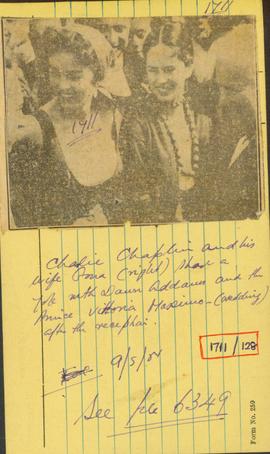 1711
1911
Chaplin and his
wife (Oona (right) share a
joke with Dawn Addams and the
Prince Vittorio Massimo - (wedding)
after the reception.
1711/128
9/5/
See file 6349
Form No. 259